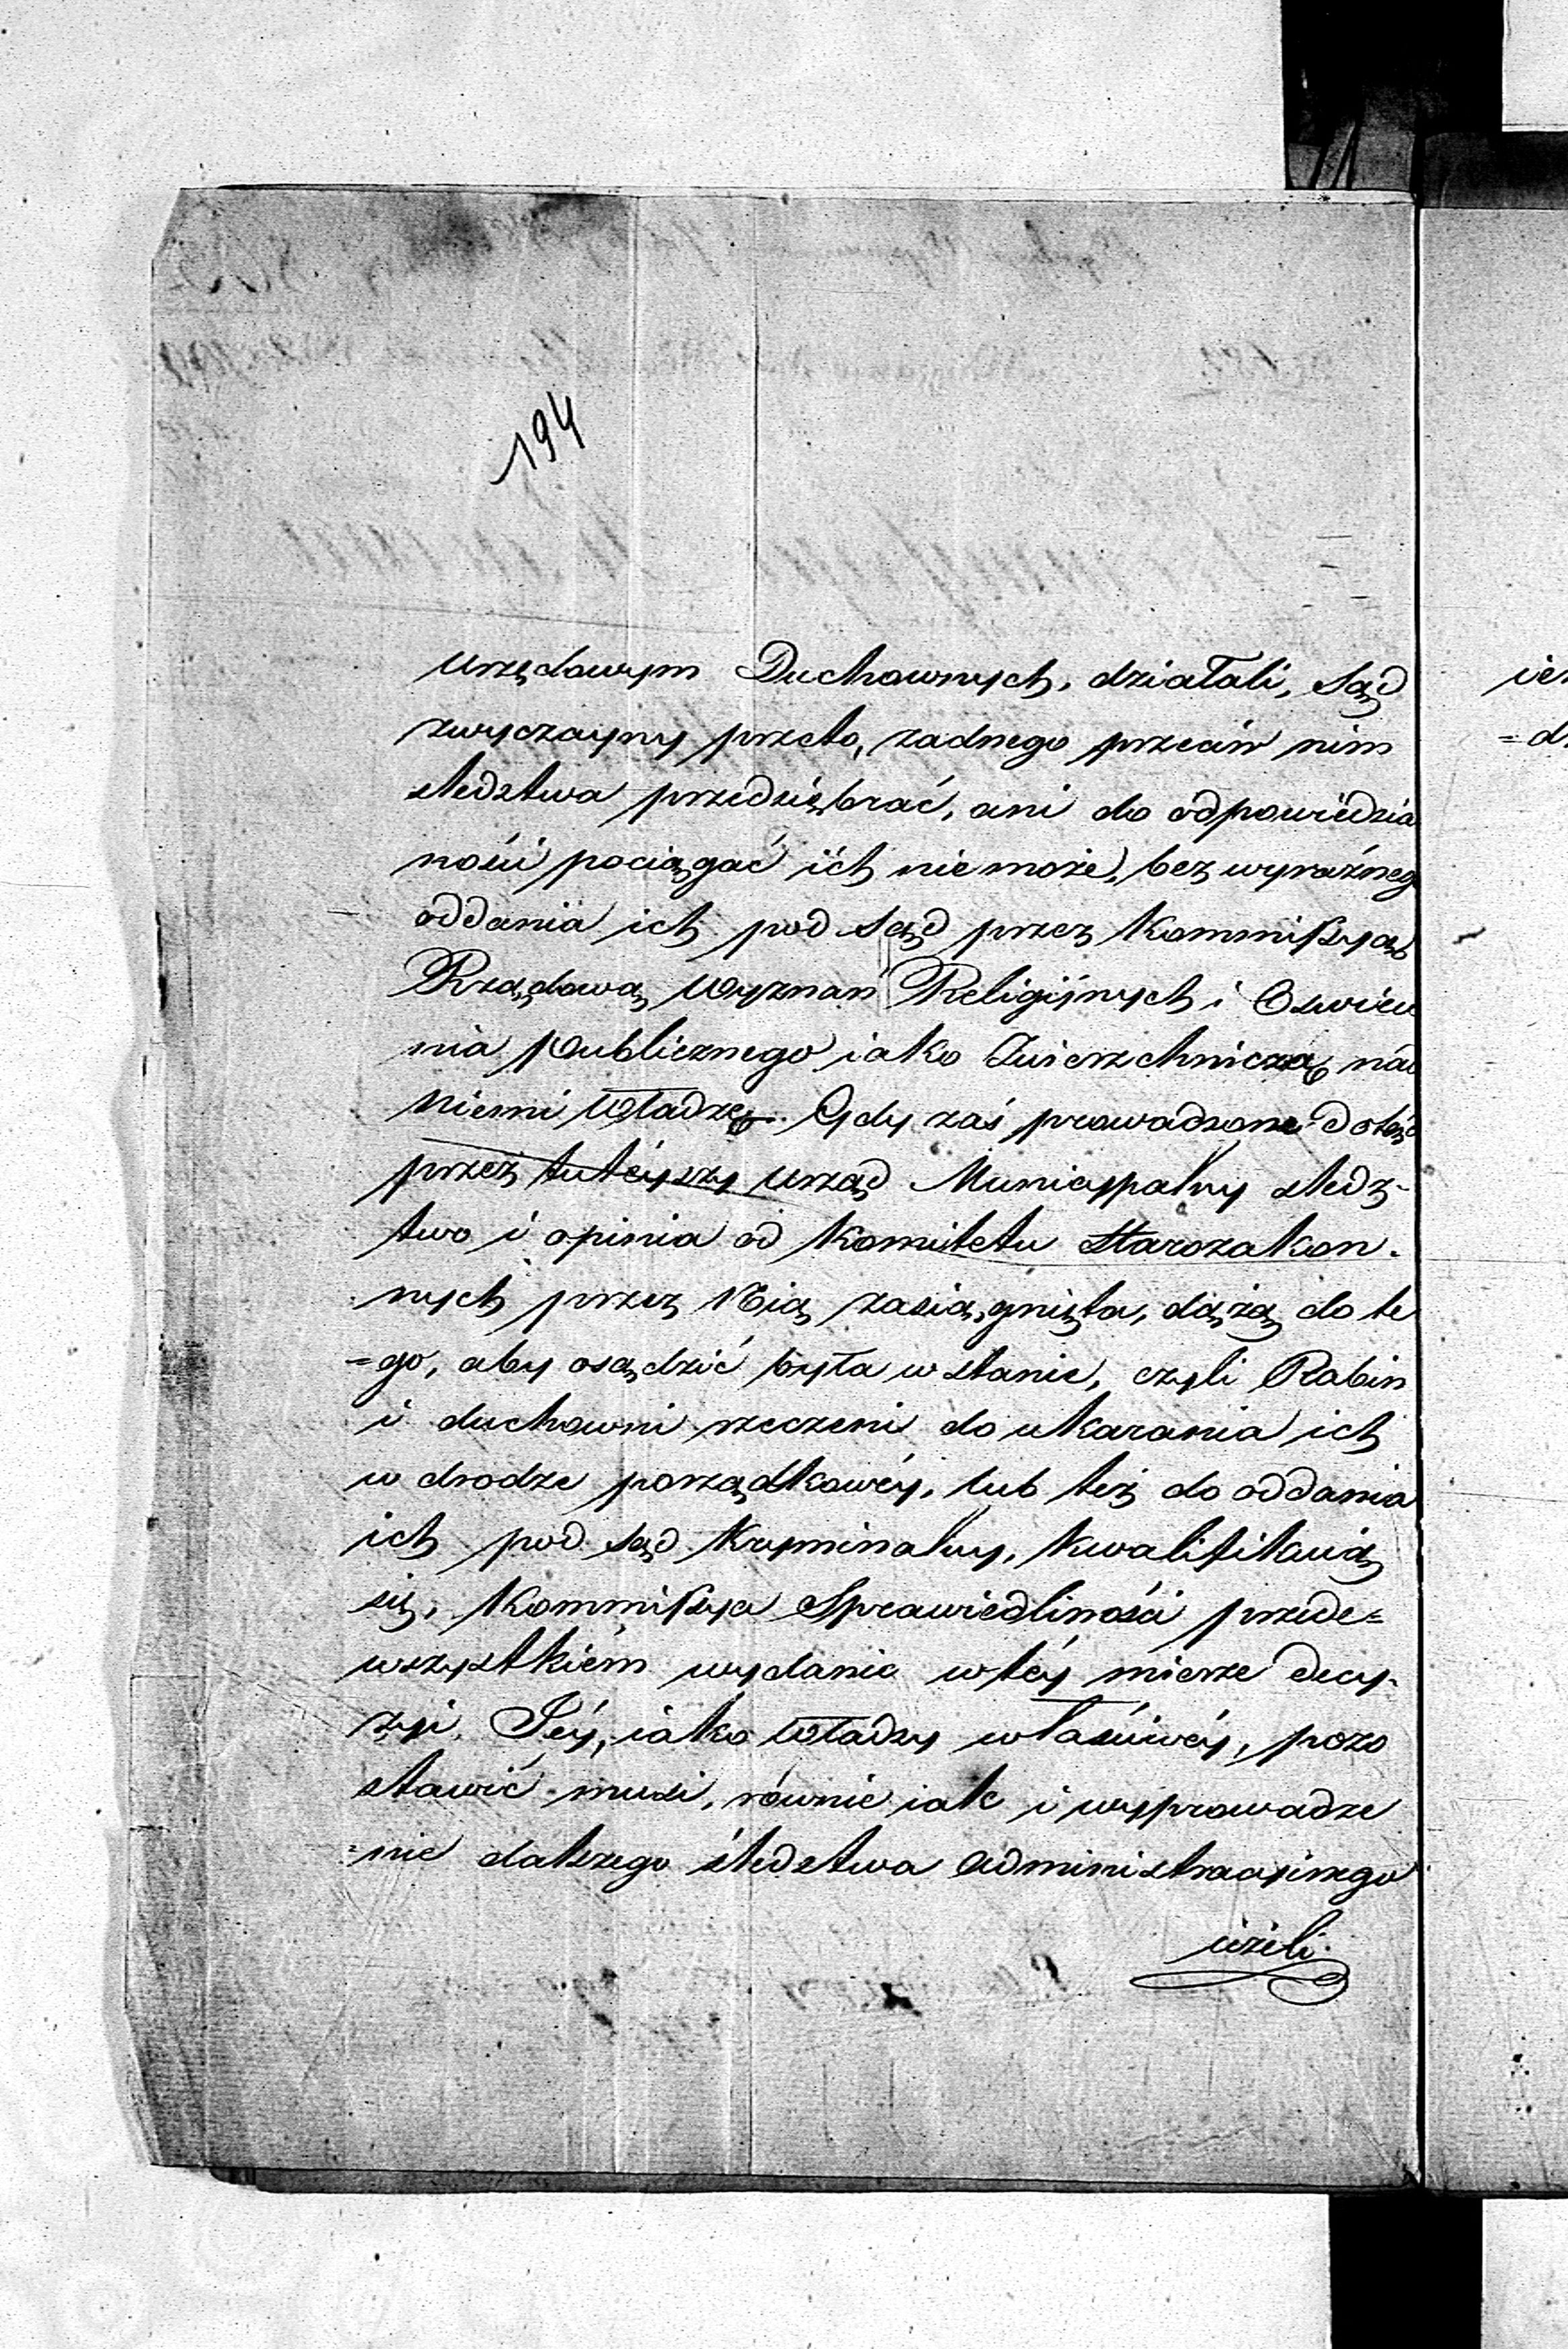 194
urzędowym Duchownych, działali, Sąd
zwyczayny przeto, żadnego przeciw nim
śledztwa przedsiębrać, ani do odpowiedzia
ności pociągać ich nie może, bez wyraźneg
oddania ich pod Sąd przez Kommissyą
Rządową Wyznań Religijnych i Oświece
nia Publicznego iako Zwierzchniczą nad
niemi Władzę. Gdy zaś prowadzone dotąd
przez tuteyszy Urząd Municypalny śledz-
two i opinia od Komitetu Starozakon-
nych przez Nią zasiągnięta, dążą do te
=go, aby osądzić była w stanie, czyli Rabin
i duchowni rzeczeni do ukarania ich
w drodze porządkowéy, lub też do oddania
ich pod Sąd Kryminalny, kwalifikuią
się, Kommissya Sprawiedliwości przede=
wszystkiém wydanie w téy mierze decy-
zyi, Jéy, iako Władzy właściwéy, pozo
stawić musi, równie iak i wyprowadze
=nie dalszego śledztwa administracyinego
ieżeli